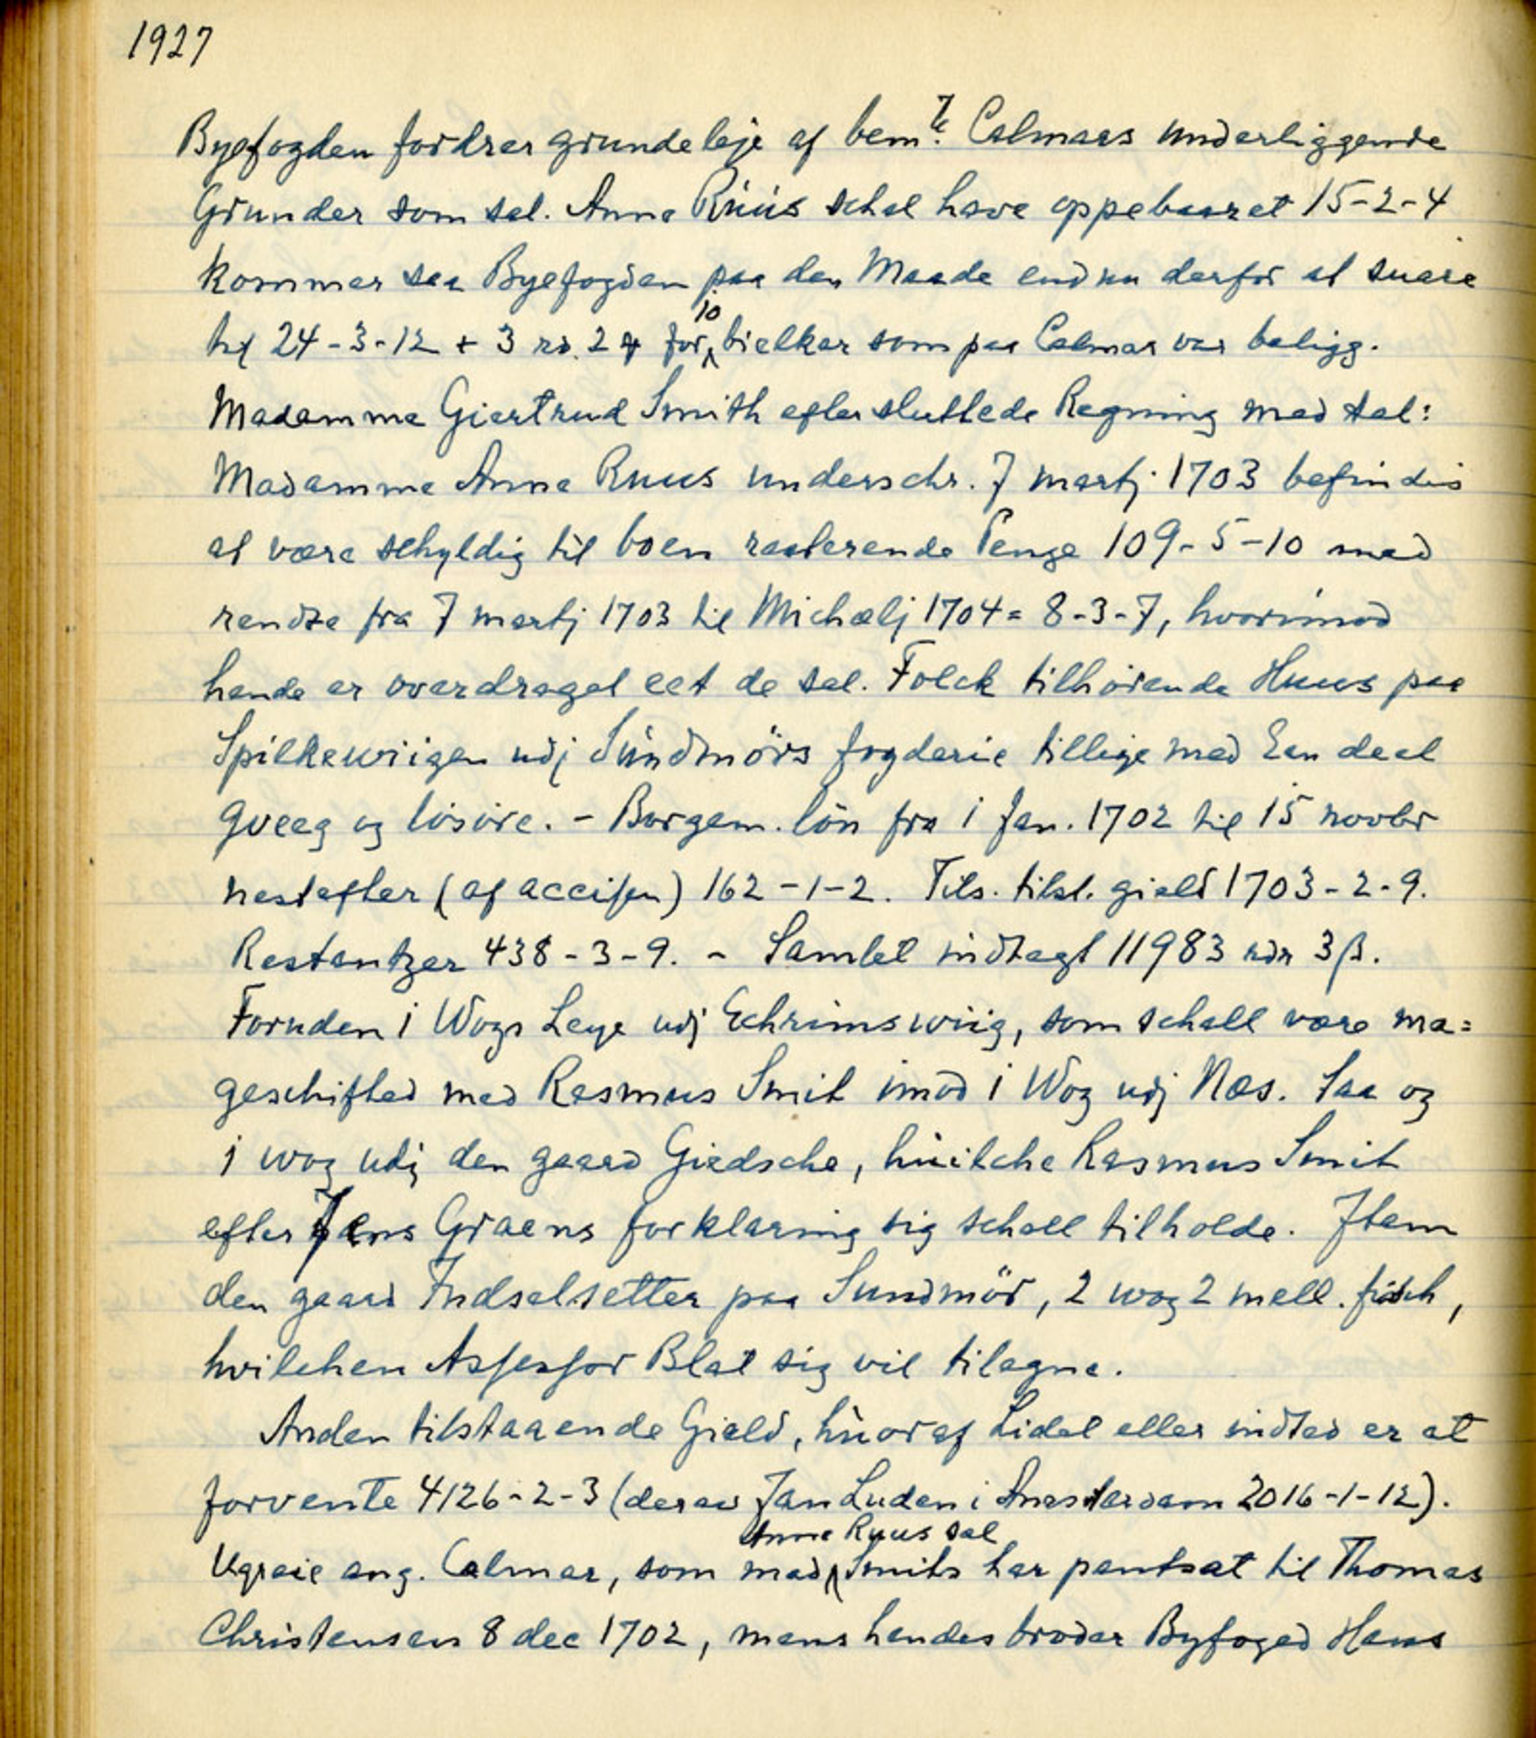 1927
Byefogden fordrer grundeleje af bem.te Calmars underliggende
Grunder som sal. Anna Rúús schal have oppebaaret 15-2-4
kommer saa Byefogden paa den Maade endnu derfor at suare
til 24-3-12 + 3 rd. 2 for 10 bielker som paa Calmar var beligg.
Madamme Giertrud Smith efter sluttede Regning med sal:
Madamme Anna Ruus underschr. 7 martj 1703 befindis
at være schyldig til boen resterende Penge 109-5-10 med
rendte fra 7 martj 1703 til Michælj 1704 = 8-3-7, hvorimod
hende er overdraget eet de sal. Folck tilhörende Huus paa
Spilkewiigen udj Sundmörs fogderie tillige med Een deel
qveeg og lösöre. - Borgem. lön fra 1 Jan. 1702 til 15 novbr
nestefter (af accisen) 162-1-2. Tils. tilst. gield 1703-2-9.
Restantzer 438-3-9. - Samlet indtægt 11983 rdr 3 β.
Foruden 1 Wogs Leye udj Echrimswiig, som schall være ma=
geschifted med Rasmus Smit imod 1 Wog udj Næs. Saa og
1 wog udj den gaard Giedsche, húilche Rasmus Smit
efter Jens Graens forklaring sig schall tilholde. Jtem
den gaard Indselsetter paa Sundmör, 2 wog 2 mell. fisch,
hvilchen Assessor Blat sig vil tilegne.
Anden tilstaaende Gield, húoraf Lidet eller indted er at
forvente 4126-2-3 (derav Jan Luden i Amsterdam 2016-1-12).
Anne Ruus sal
Ugreie ang. Calmar, som mad Smits har pantsat til Thomas
Christensen 8 dec 1702, mens hendes broder Byfoged Hans